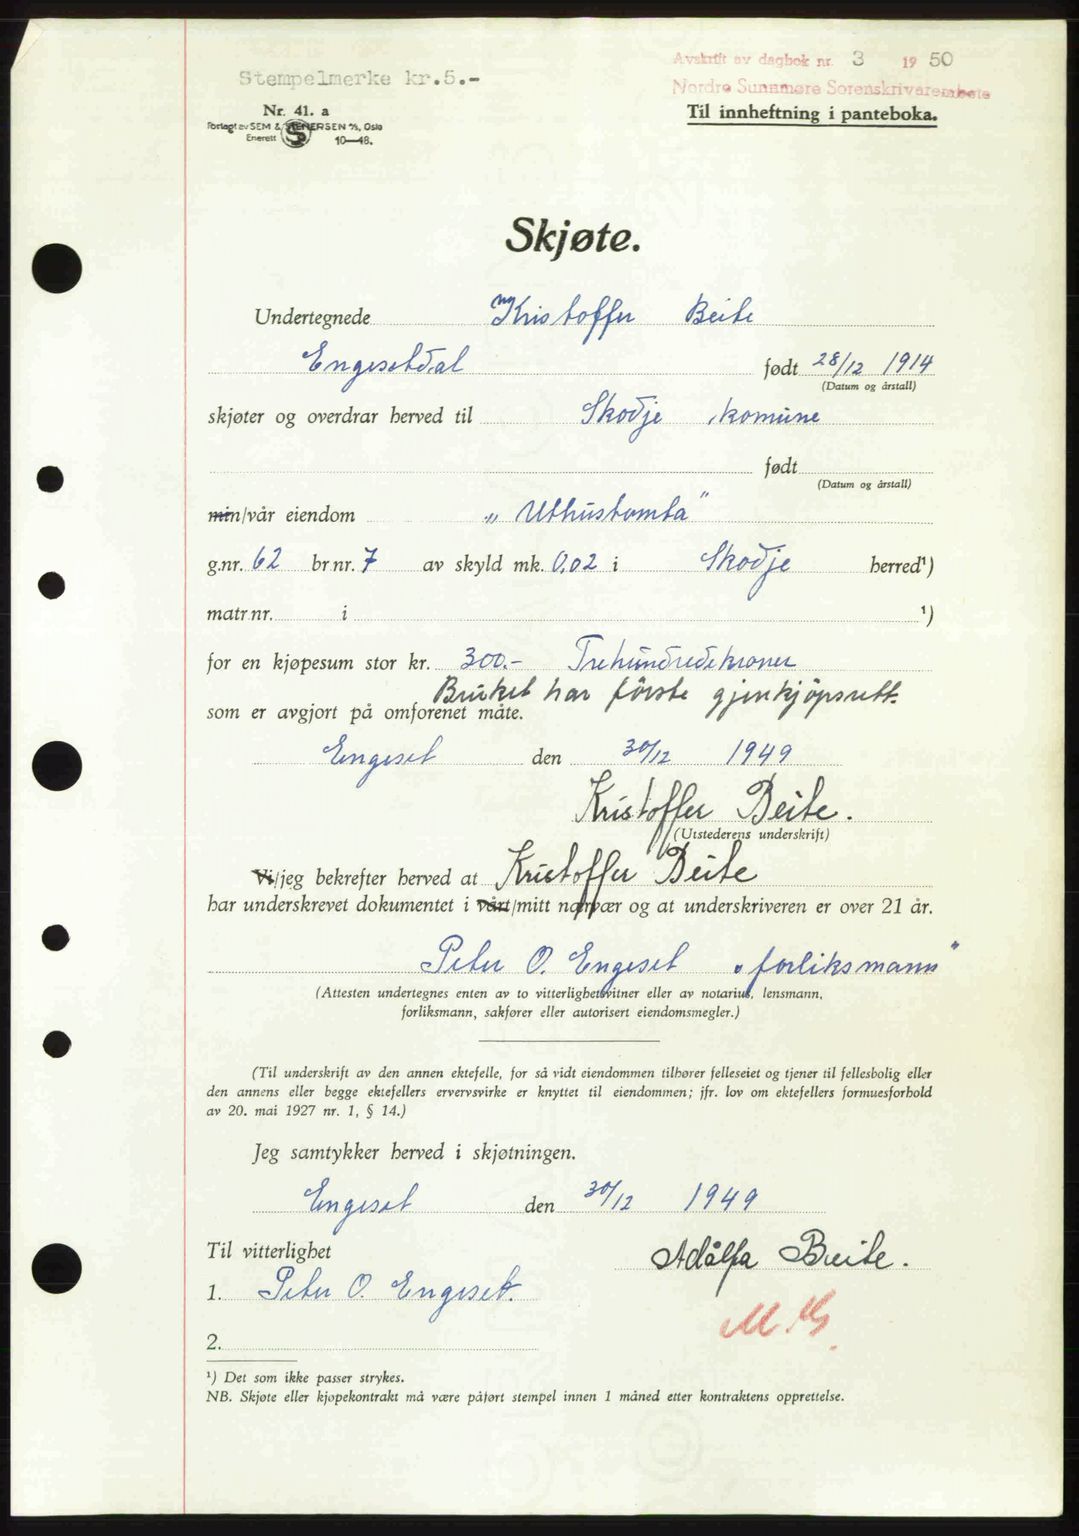 Stempelmerke kr.5.-
Avskrift av dagbok nr. 3 1950
Nordre Sunnmøre Sorenskriverembete
Nr. 41. a
Forlagt av SEM & STENERSEN A/S, Oslo
Enerett 10—48.
Til innheftning i panteboka.
Skjøte.
Undertegnede Kristoffer Beite
Engesetdal født 28/12 1914
(Datum og årstall)
skjøter og overdrar herved til Skodje komune
født
(Datum og årstall)
min/vår eiendom „Uthustomta"
g.nr. 62 br nr. 7 av skyld mk. 0,02 i Skodje herred¹)
matr.nr. i ¹)
for en kjøpesum stor kr. 300.- Trehundredekroner
Bruket har første gjenkjöpsrett.
som er avgjort på omforenet måte.
Engeset den 30/12 1949
Kristoffer Beite.
(Utstederens underskrift)
Vi/jeg bekrefter herved at Kristoffer Beite
har underskrevet dokumentet i vårt/mitt nærvær og at underskriveren er over 21 år.
Peter O. Engeset „forliksmann"
(Attesten undertegnes enten av to vitterlighetsvitner eller av notarius, lensmann,
forliksmann, sakfører eller autorisert eiendomsmegler.)
(Til underskrift av den annen ektefelle, for så vidt eiendommen tilhører felleseiet og tjener til fellesbolig eller
den annens eller begge ektefellers ervervsvirke er knyttet til eiendommen; jfr. lov om ektefellers formuesforhold
av 20. mai 1927 nr. 1, § 14.)
Jeg samtykker herved i skjøtningen.
Engeset den 30/12 1949
Til vitterlighet
Adålfa Beite.
1. Peter O. Engeset.
2.
¹) Det som ikke passer strykes.
NB. Skjøte eller kjøpekontrakt må være påført stempel innen 1 måned etter kontraktens opprettelse.